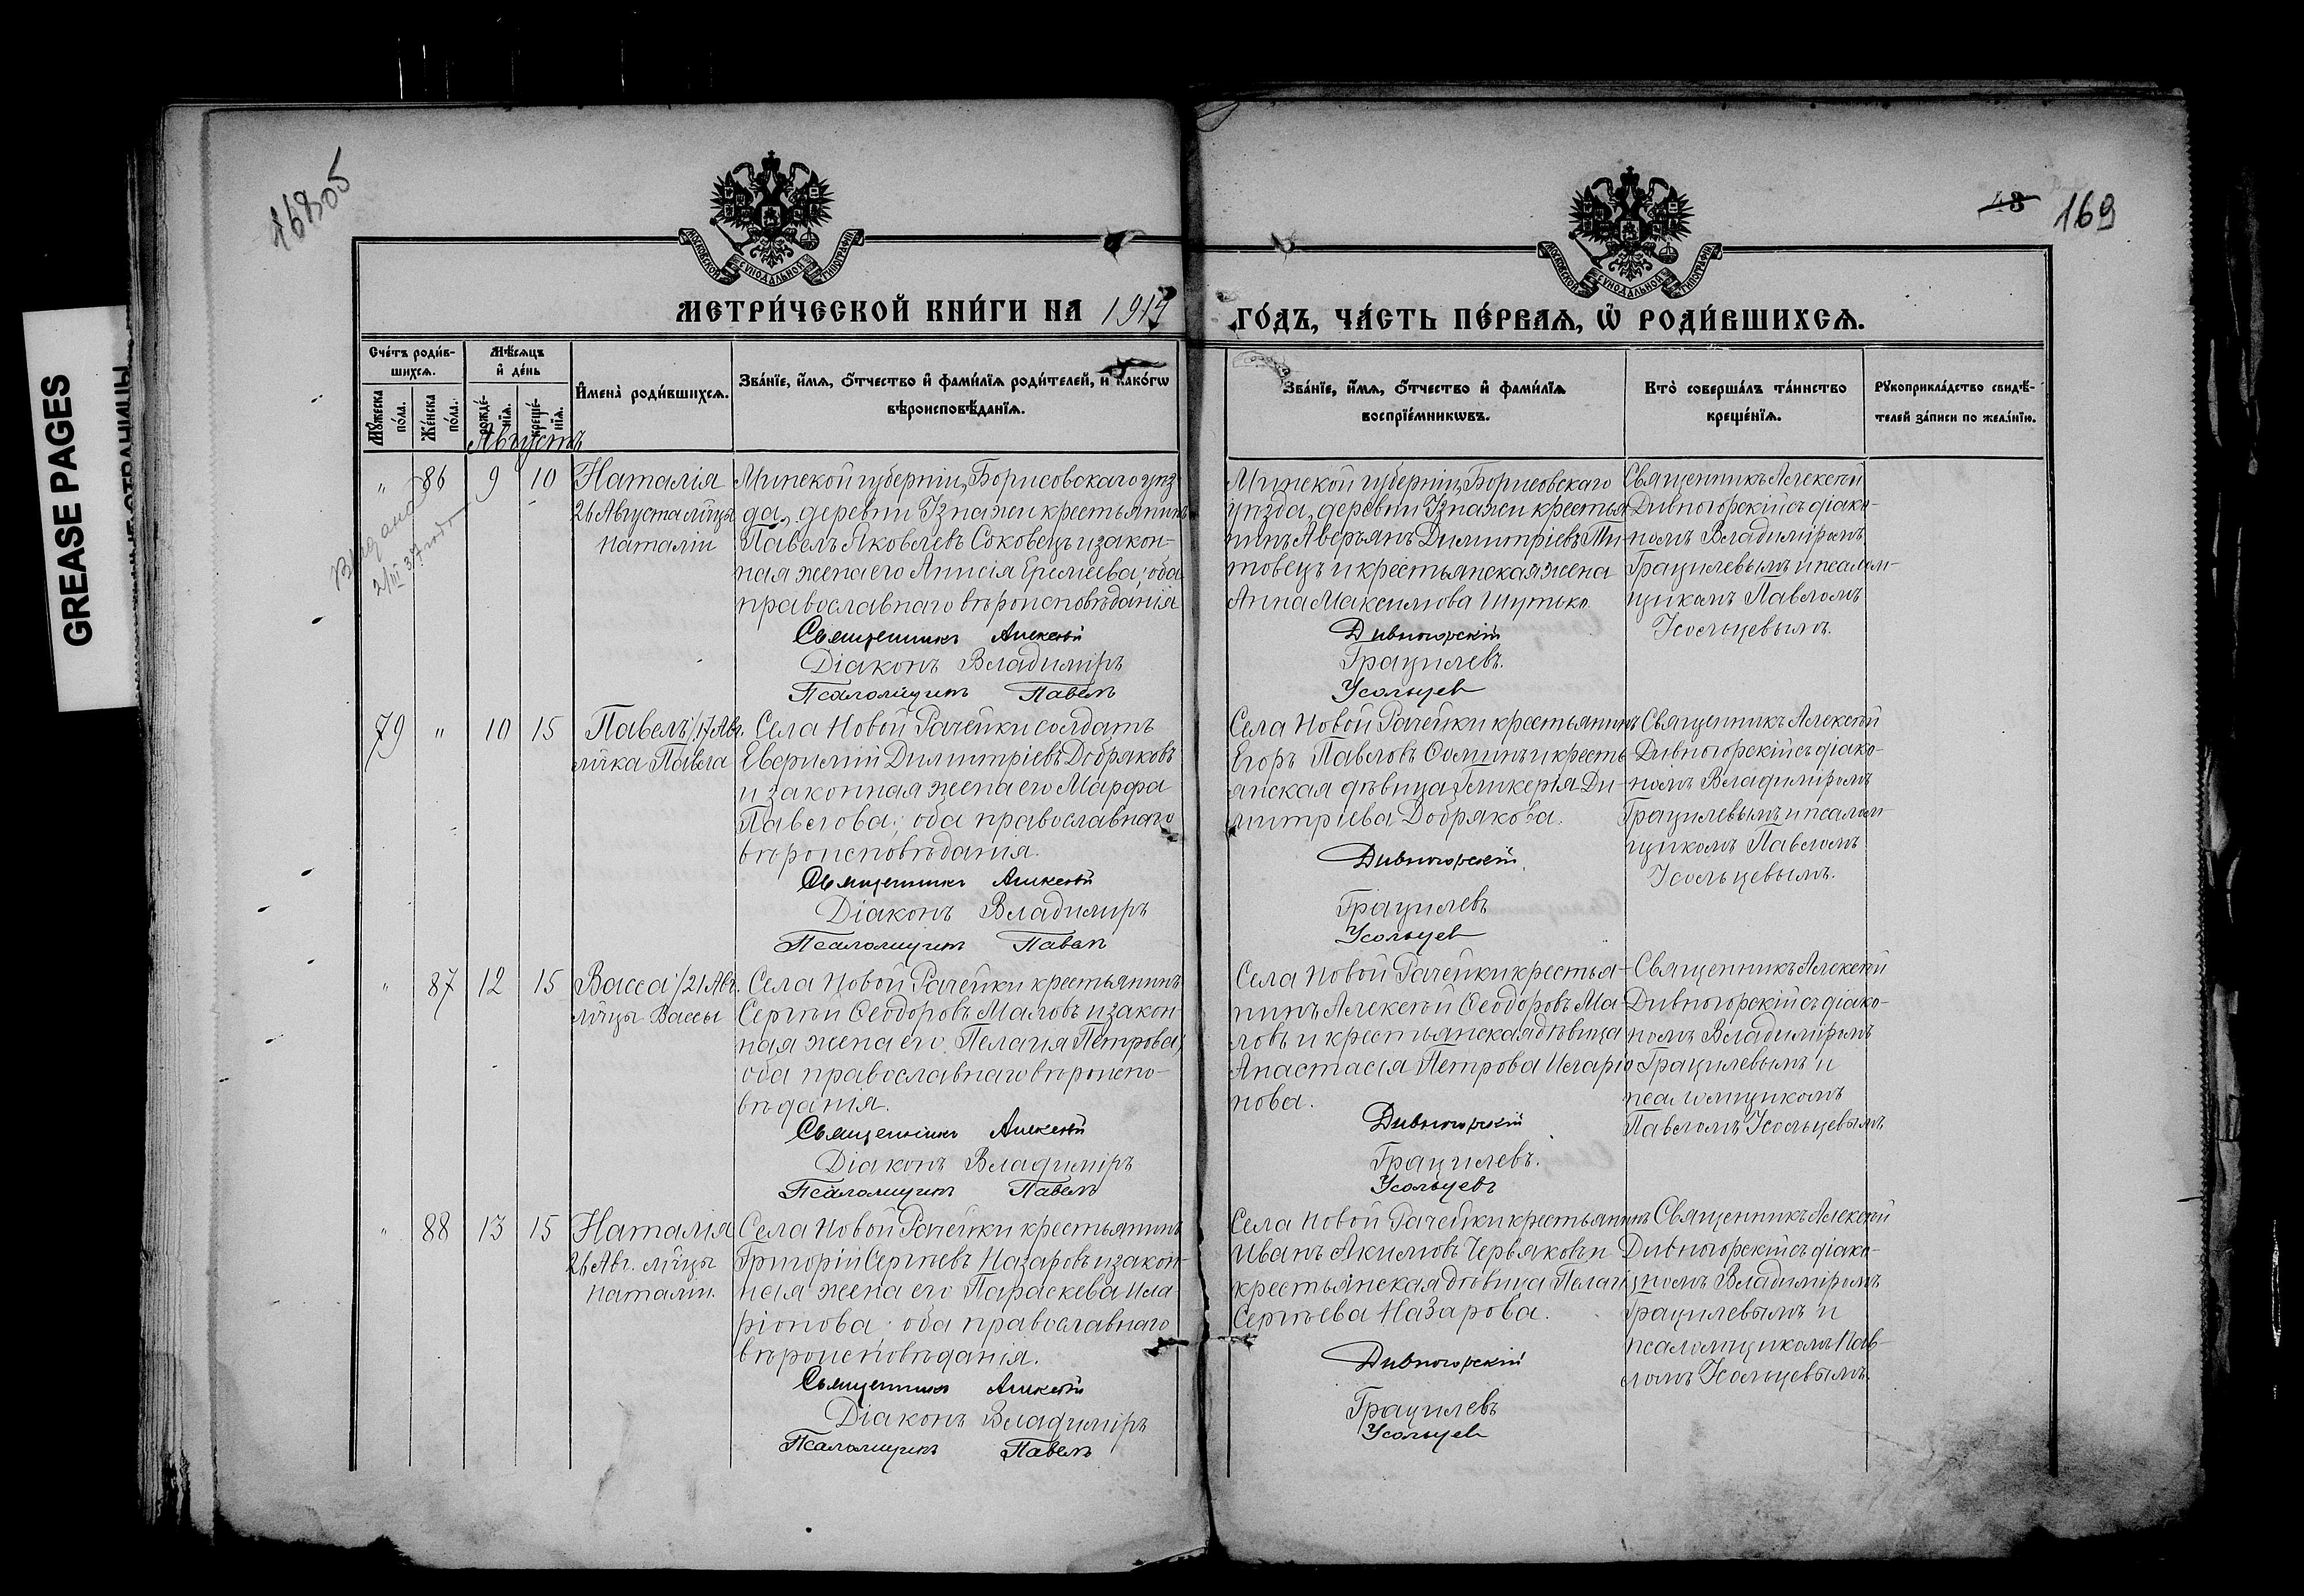 168об
43 169
GREASE PAGES
МОСКОВСКОЙ СѴНОДАЛЬНОЙ ТИПОГРАФІИ
МОСКОВСКОЙ СѴНОДАЛЬНОЙ ТИПОГРАФІИ
МЕТРИ́ЧЕСКОЙ КНИ́ГИ НА 1914
ГО́ДЪ, ЧА́СТЬ ПЕ́РВАЯ, Ѡ҆ РОДИ́ВШИХСЯ.
Сче́тъ роди́в-
шихся.
Мꙋ́жеска по́ла.
Же́нска по́ла.
Мѣ́сяцъ
и҆ де́нь
рожде́-нїя.
креще́-нїя.
И҆мена̀ роди́вшихся.
Зва́нїе, и҆́мя, ѻ҆́тчество и҆ фами́лїя роди́телей, и҆ како́гѡ
вѣроисповѣ́данїя.
Зва́нїе, и҆́мя, ѻ҆́тчество и҆ фами́лїя
воспрїе́мникѡвъ.
Кто̀ соверша́лъ та́инство
креще́нїя.
Рꙋкоприкла́дство свидѣ́-
телей за́писи по жела́нїю.
Августъ
" 86 9 10 Наталія
26 Августа м̃цы
Наталіи
Выдано
2/III 37 года
Минской губерніи, Борисовскаго уѣз-
да, деревни Узнажи крестьянинъ
Павелъ Яковлевъ Соковецъ и закон-
ная жена его Анисія Еремѣева; оба
православнаго вѣроисповѣданія
Священникъ Алексѣй
Діаконъ Владиміръ
Псаломщикъ Павелъ
Минской губерніи, Борисовскаго
уѣзда, деревни Узнажи крестья-
нинъ Аверьянъ Димитріевъ Ти-
товецъ и крестьянская жена
Анна Максимова Шутько
Дивногорскій
Грацилевъ.
Усольцев
Священникъ Алексѣй
Дивногорскій съ діако-
номъ Владиміромъ
Грацилевымъ и псалом-
щикомъ Павломъ
Усольцевымъ.
79 " 10 15 Павелъ /17 Авг.
м̃чка Павла
Села Новой Рачейки солдатъ
Евфимій Димитріевъ Добряковъ
и законная жена его Марфа
Павлова; оба православнаго
вѣроисповѣданія.
Священникъ Алексѣй
Діаконъ Владиміръ
Псаломщикъ Павелъ
Села Новой Рачейки крестьянинъ
Егоръ Павловъ Ѳоминъ и кресть-
янская дѣвица Гликерія Ди-
митріева Добрякова.
Дивногорскій
Грацилевъ
Усольцев
Священникъ Алексѣй
Дивногорскій съ діако-
номъ Владиміромъ
Грацилевымъ и псалом-
щикомъ Павломъ
Усольцевымъ.
" 87 12 15 Васса /21 Авг.
м̃цы Вассы
Села Новой Рачейки крестьянинъ
Сергѣй Ѳеодоровъ Маловъ и закон-
ная жена его Пелагія Петрова;
оба православнаго вѣроиспо-
вѣданія.
Священникъ Алексѣй
Діаконъ Владиміръ
Псаломщикъ Павелъ
Села Новой Рачейки крестья-
нинъ Алексѣй Ѳеодоровъ Ма-
ловъ и крестьянская дѣвица
Анастасія Петрова Иларіо-
нова.
Дивногорскій
Грацилевъ.
Усольцевъ
Священникъ Алексѣй
Дивногорскій съ діако-
номъ Владиміромъ
Грацилевымъ и
псаломщикомъ
Павломъ Усольцевымъ
" 88 13 15 Наталія
26 Авг. м̃цы
Наталіи.
Села Новой Рачейки крестьянинъ
Григорій Сергѣевъ Назаровъ и закон-
ная жена его Параскева Ила-
ріонова; оба православнаго
вѣроисповѣданія.
Священникъ Алексѣй
Діаконъ Владиміръ
Псаломщикъ Павелъ
Села Новой Рачейки крестьянинъ
Иванъ Акимовъ Червяковъ и
крестьянская дѣвица Пелагія
Сергѣева Назарова.
Дивногорскій
Грацилевъ
Усольцев
Священникъ Алексѣй
Дивногорскій съ діако-
номъ Владиміромъ
Грацилевымъ и
псаломщикомъ Пав-
ломъ Усольцевымъ.